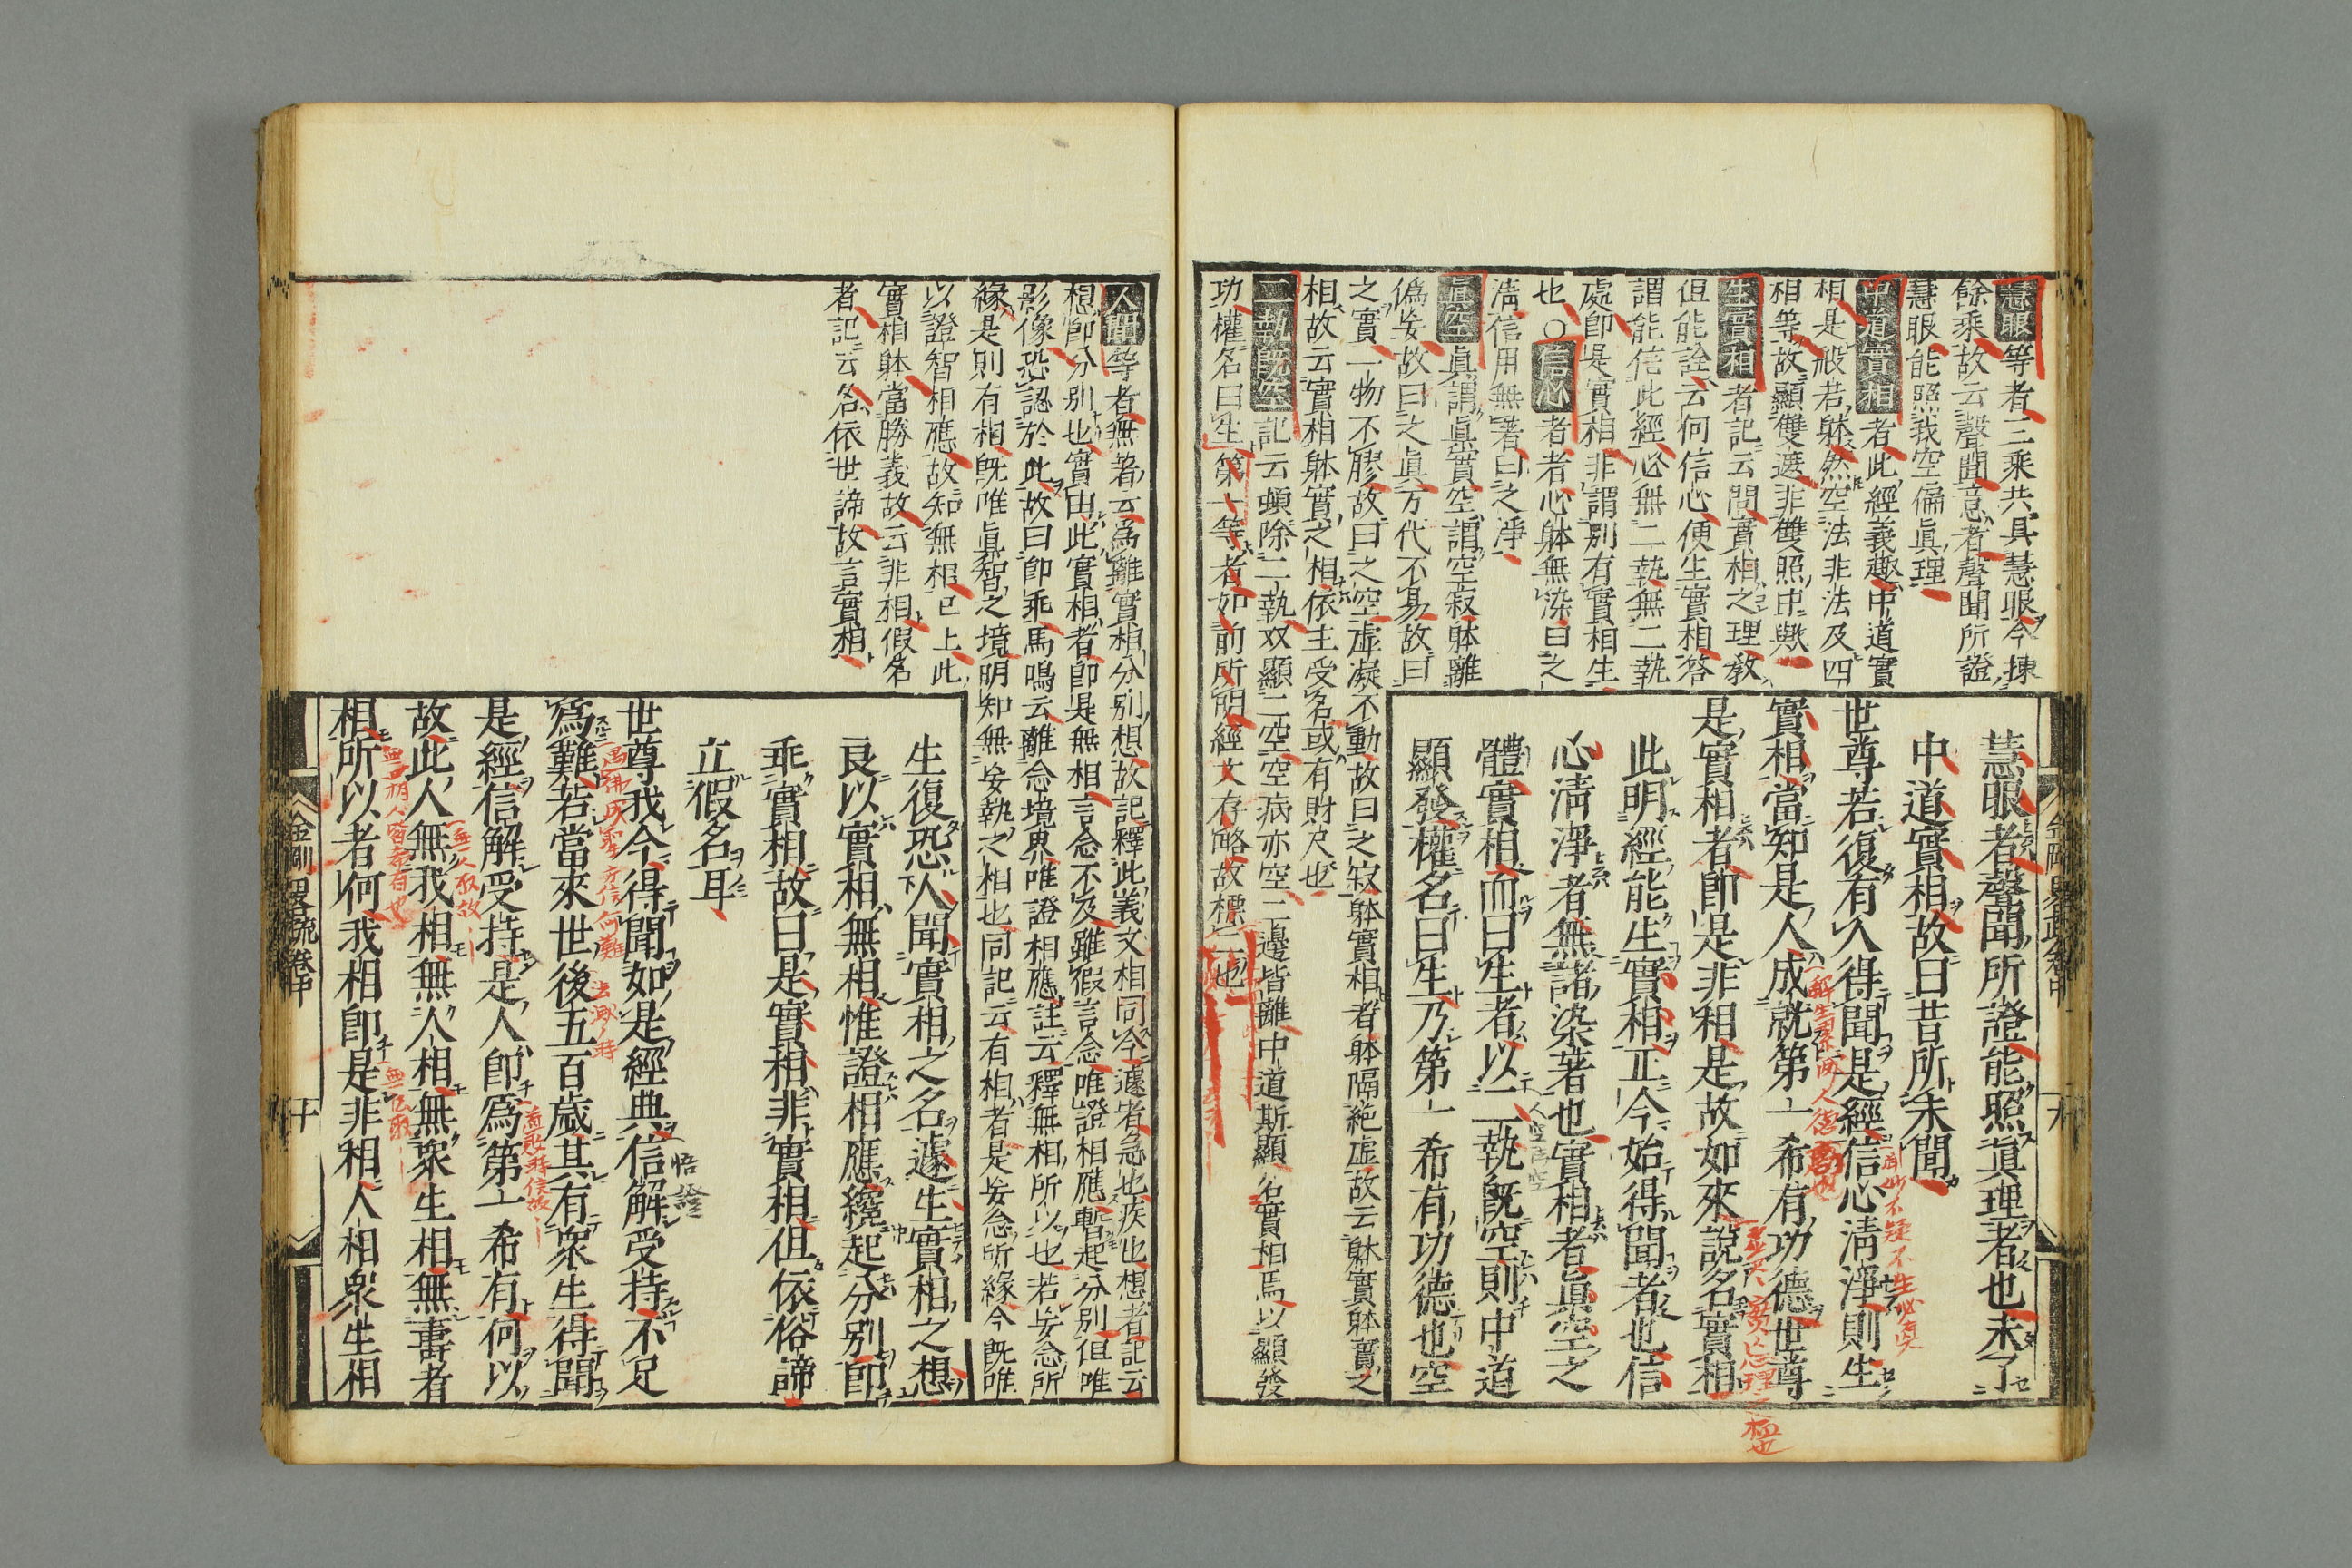 慧眼等者三乘共具慧眼今揀
餘乘故云聲聞意者聲聞所證
慧眼能照我空偏眞理
中道實相者此經義趣中道實
相是般若躰然空法非法及四
相等故顯雙遮非雙照中歟
生實相者記云問實相之理敎
但能詮云何信心便生實相答
謂能信此經必無二執無二執
處卽是實相非謂別有實相生
也○信心者者心躰無染曰之
淸信用無著曰之淨
眞空眞謂眞實空謂空寂躰離
偽妄故曰之眞万代不易故曰
之實一物不膠故曰之空虛凝不動故曰之寂躰實相者躰隔絶虛故云躰實躰實之
相故云實相躰實之相依主受名或有財尺也
二執旣空記云頓除二執双顯二空空病亦空二邊皆離中道斯顯名實相焉以顯發
功權名曰生第一等者如前所明經文存略故標二也
慧眼者聲聞所證能照眞理者也未了
中道實相故曰昔所未聞
世尊若復有人得聞是經信心淸淨則生
實相當知是人成就第一希有功德世尊
是實相者卽是非相是故如來說名實相
此明經能生實相正今始得聞者也信
心淸淨者無諸染著也實相者眞空之
體實相而曰生者以二執旣空則中道
顯發權名曰生乃第一希有功德也空
金剛畧疏卷中
人聞等者無著云爲離實相分別想故記釋此義文相同今遽者急也疾也想者記云
想卽分別也實由此實相者卽是無相言念不及雖假言念唯證相應暫起分別但唯
影像恐認於此故曰卽乖馬鳴云離念境界唯證相應註云釋無相所以也若妄念所
緣是則有相旣唯眞智之境明知無妄執之相也同記云有相者是妄念所緣今旣唯
以證智相應故知無相已上此
實相躰當勝義故云非相假名
者記云名依世諦故言實相
生復恐人聞實相之名遽生實相之想
良以實相無相惟證相應纔起分別卽
乖實相故曰是實相非實相但依俗諦
立假名耳
世尊我今得聞如是經典信解受持不足
爲難若當來世後五百歲其有衆生得聞
是經信解受持是人卽爲第一希有何以
故此人無我相無人相無衆生相無壽者
相所以者何我相卽是非相人相衆生相
金剛畧疏卷中
十